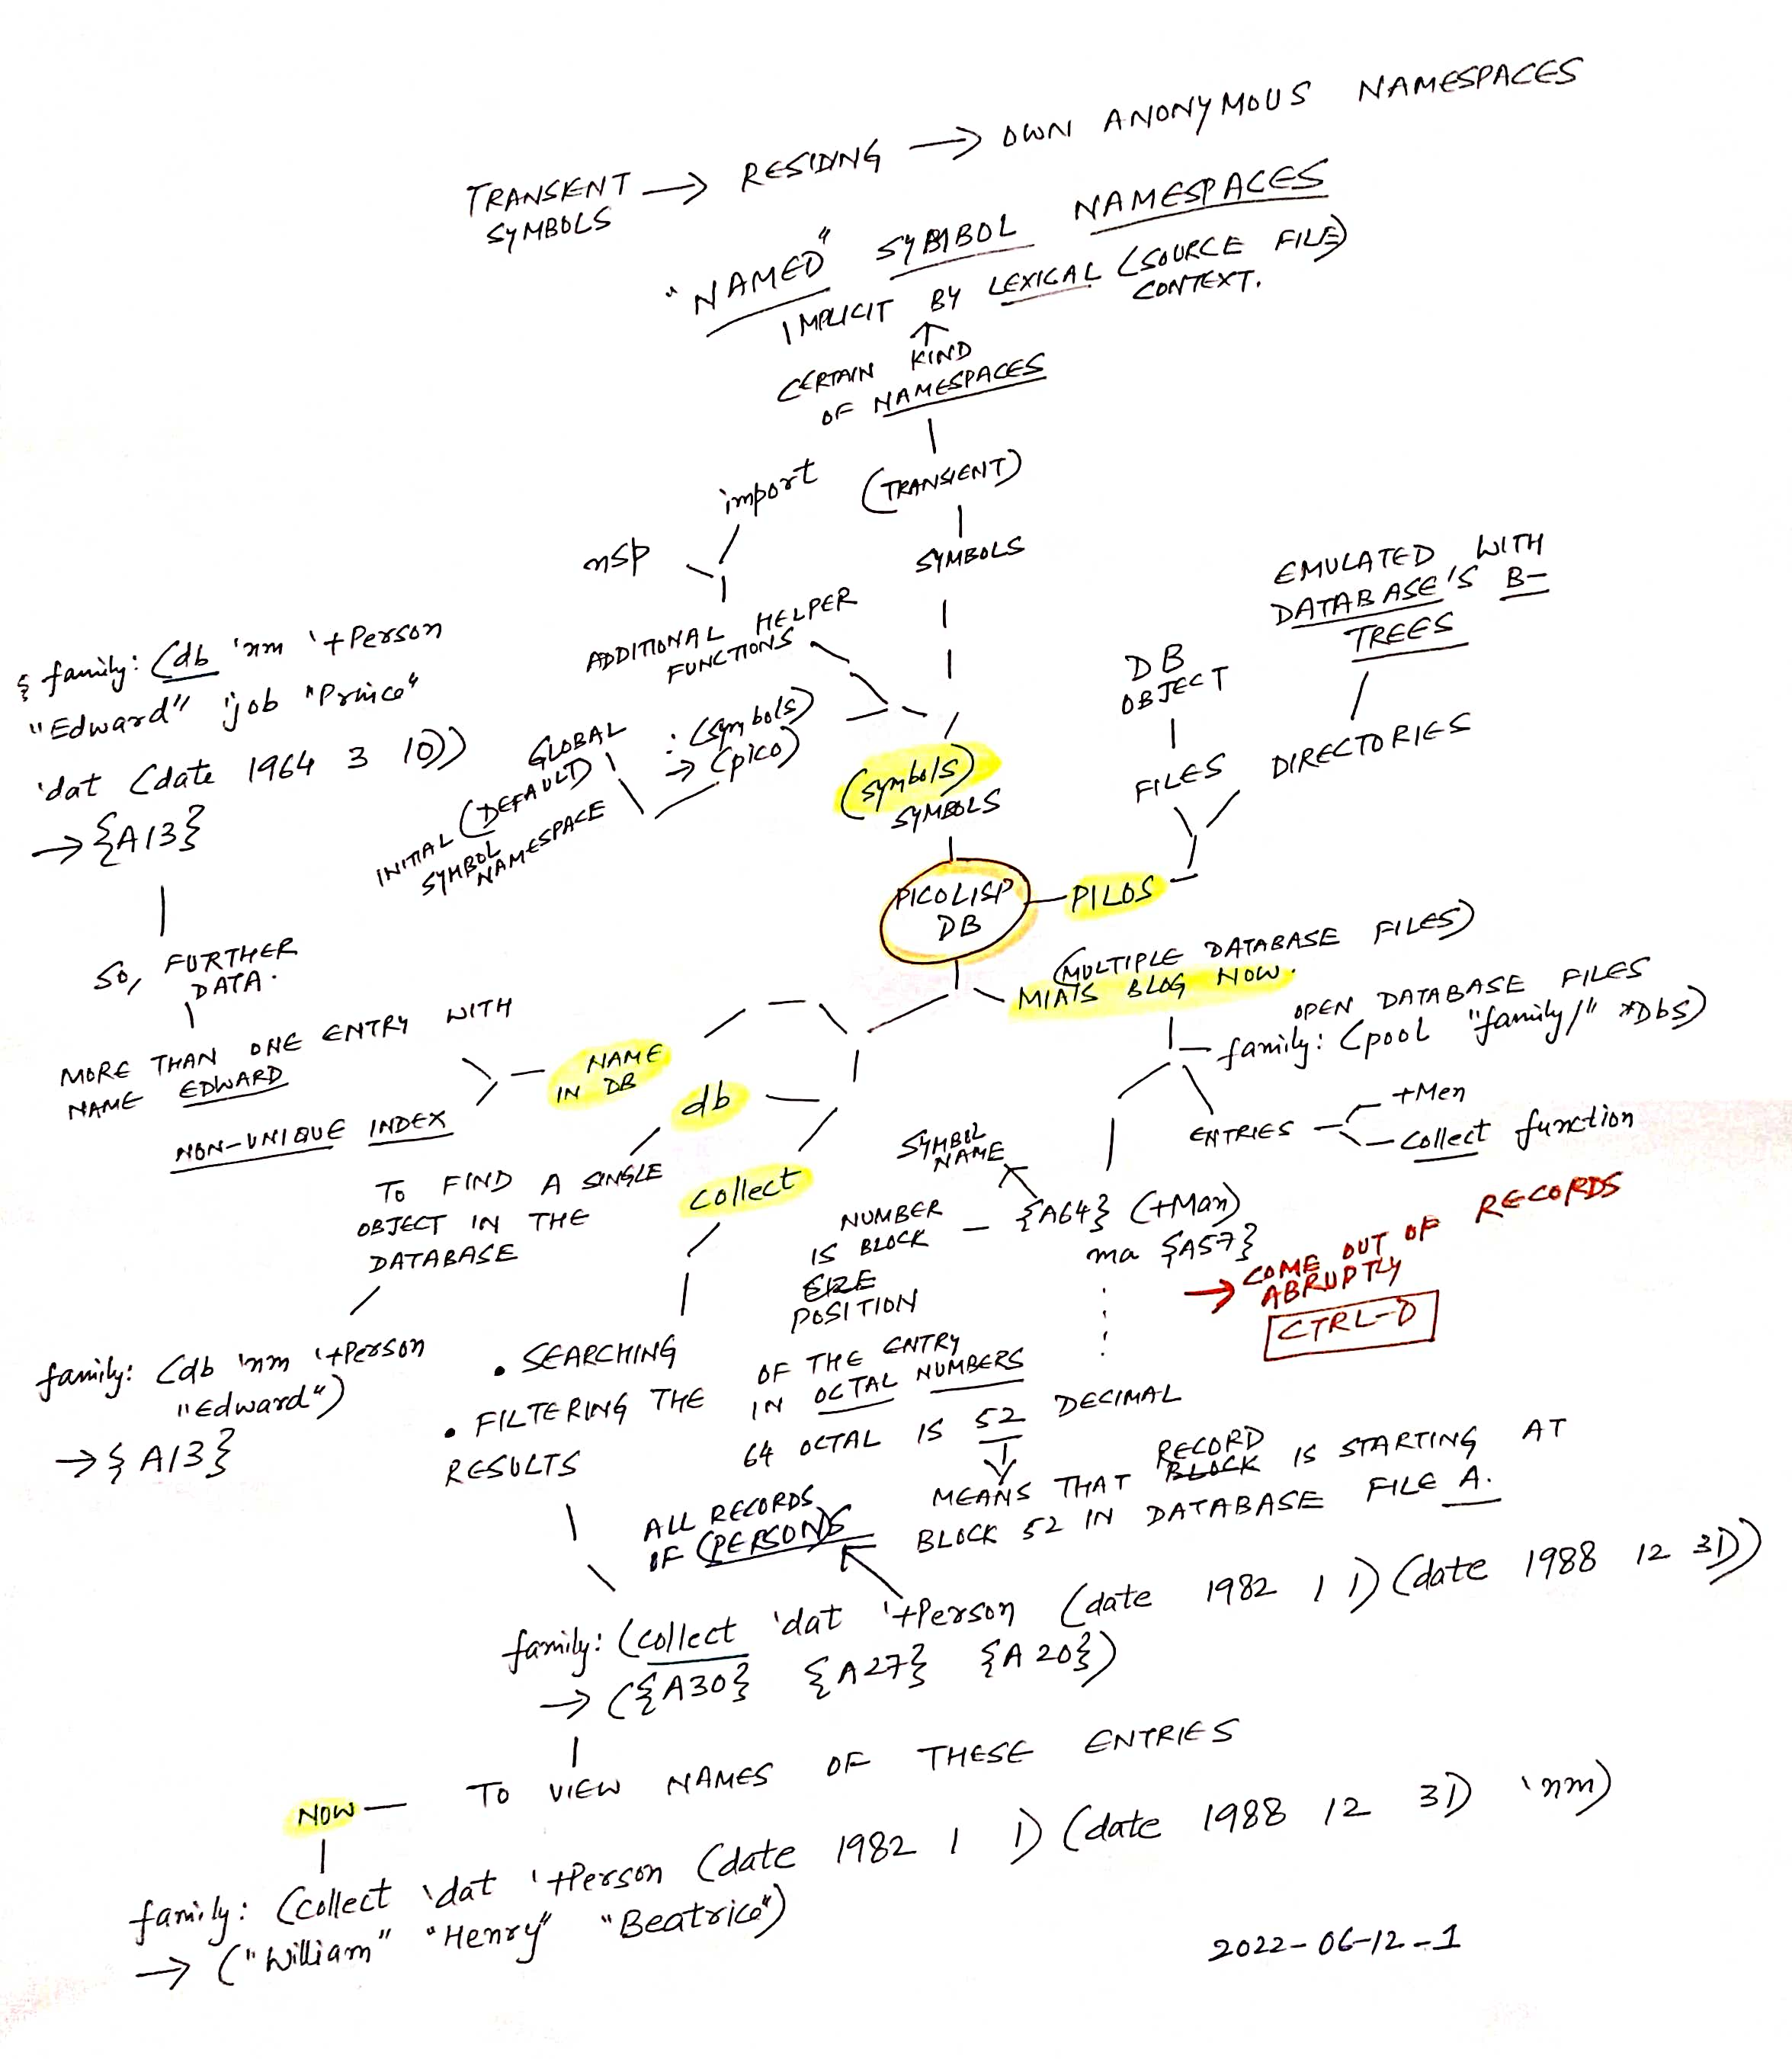 TRANSIENT → RESIDING → OWN ANONYMOUS NAMESPACES
SYMBOLS
"NAMED" SYMBOL NAMESPACES
IMPLICIT BY LEXICAL (SOURCE FILE)
CONTEXT.
↑
CERTAIN KIND
OF NAMESPACES
import
(TRANSIENT)
nsp
SYMBOLS
ADDITIONAL HELPER
FUNCTIONS
EMULATED WITH
DATABASE'S B-
TREES
DB
OBJECT
FILES
DIRECTORIES
family: (db 'nm '+Person
"Edward" 'job "Prince"
'dat (date 1964 3 10))
→ {A13}
SO, FURTHER
DATA.
MORE THAN ONE ENTRY WITH
NAME EDWARD
NON-UNIQUE INDEX
GLOBAL
INITIAL (DEFAULT)
SYMBOL
NAMESPACE
: (symbols)
→ (pico)
(symbols)
SYMBOLS
PICOLISP
DB
PILOS
(MULTIPLE DATABASE FILES)
MIA'S BLOG NOW.
OPEN DATABASE FILES
family: (pool "family/" *Dbs)
ENTRIES
+Men
collect function
NAME
IN DB
db
TO FIND A SINGLE
OBJECT IN THE
DATABASE
family: (db 'nm '+Person
"Edward")
→ {A13}
collect
SYMBOL
NAME
{A64} (+Man)
ma {A57}
NUMBER
IS BLOCK
POSITION
OF THE ENTRY
IN OCTAL NUMBERS
64 OCTAL IS 52 DECIMAL
MEANS THAT RECORD IS STARTING AT
BLOCK
BLOCK 52 IN DATABASE FILE A.
→ COME OUT OF RECORDS
ABRUPTLY
CTRL-D
• SEARCHING
• FILTERING THE
RESULTS
ALL RECORDS
OF (PERSON)S
family: (collect 'dat '+Person (date 1982 1 1) (date 1988 12 31))
→ ({A30} {A27} {A20})
NOW — TO VIEW NAMES OF THESE ENTRIES
family: (collect 'dat '+Person (date 1982 1 1) (date 1988 12 31) 'nm)
→ ("William" "Henry" "Beatrice")
2022-06-12-1